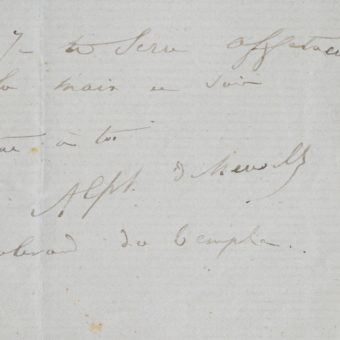 Je te serre affectueu
la main ce soir
à toi
Alph. de Neuville
boulevard du Temple.